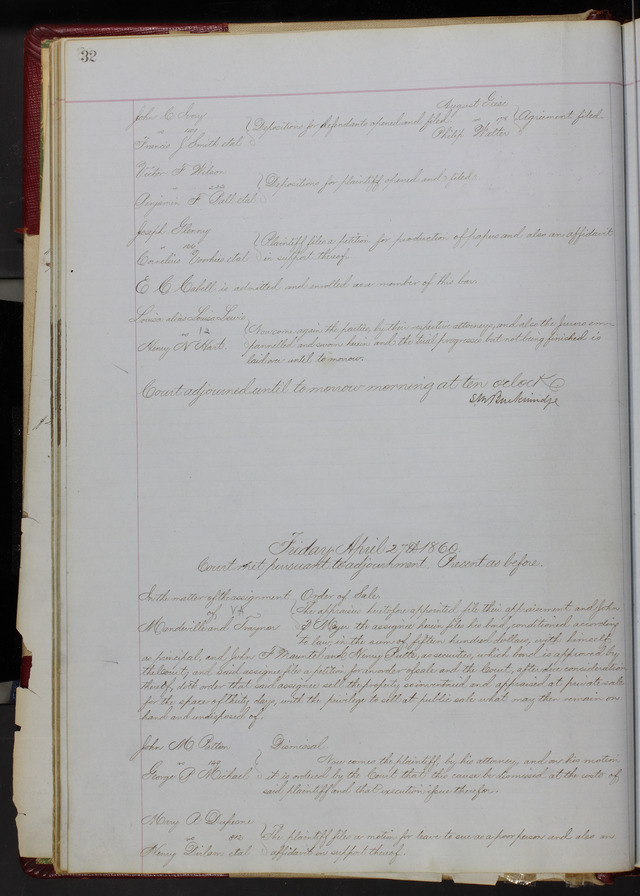 32
John C Ivory
vs
Francis J Smith etal
Depositions for defendants opened and filed
August Geise
vs
Philip Walter
Agreement filed
Victor F Wilson
vs
Benjamin F Pell etal
Depositions for plaintiff opened and filed
Joseph Glenney
vs
Cornelius etal
Plaintiff files a petition for production of papers and also an affidavit
in support thereof.
E C Cabell is admitted and enrolled as a member of this bar.
Louisa alias Louisa Lewis
vs 12
Henry N Hart.
Now come again the parties, by their respective attorneys, and also the Jurors em-
pannelled and sworn herein and the trial progresses but not being finished is
laid over until to morrow.
Court adjourned until to morrow morning at ten oclock
S.M. Breckinridge
Friday April 27th 1860.
Court met pursuant to adjournment. Present as before.
In the matter of the assignment
of
Manderville and
Order of Sale
The appraisers heretofore appointed file their appraisement and John
D Meyer the assignee herein files his bond, conditioned according
to law, in the sum of fifteen hundred dollars, with himself
as principal, and John F and Henry as securities, which bond is approved by
the Court, and said assignee files a petition for an order of sale and the Court, after due consideration
thereof, doth order that said assignee sell the property so inventoried and appraised at private sale
for the space of thirty days, with the privilege to sell at public sale what may then remain on
hand and undisposed of.
John M Patton
vs
George P Michael
Dismissal
Now comes the plaintiff by his attorney, and on his motion
it is ordered by the Court that this cause be dismissed at the costs of
said plaintiff and that execution issue therefor.
Mary A
vs
Henry etal
The plaintiff files a motion for leave to sue as a poor person and also an
affidavit in support thereof.